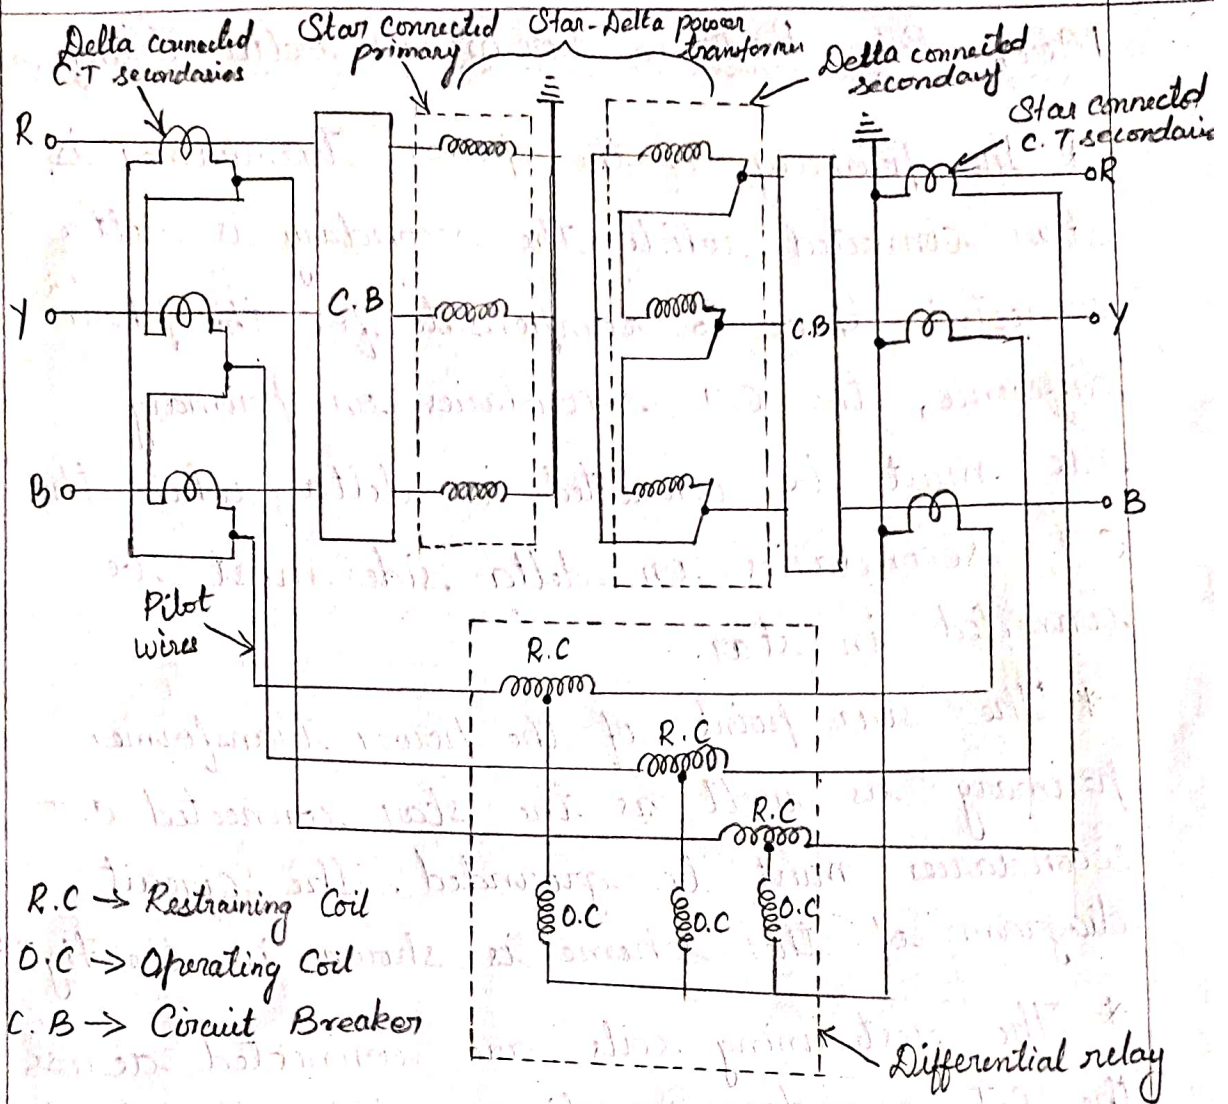 Delta connected
C.T secondaries
Star connected
primary
Star-Delta power
transformer
Delta connected
secondary
Star connected
C.T. secondaries
R
Y
B
C.B
C.B
R
Y
B
Pilot
wires
R.C
R.C
R.C
O.C
O.C
O.C
R.C → Restraining Coil
O.C → Operating Coil
C.B → Circuit Breaker
Differential relay